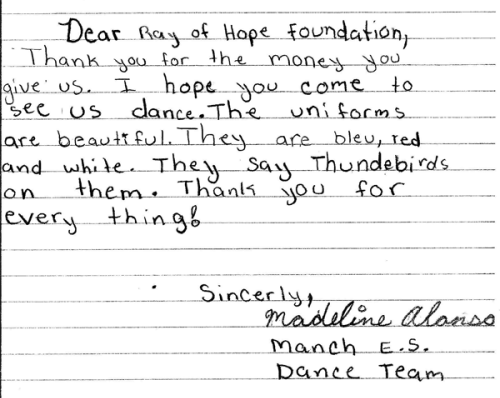 Dear Ray of Hope foundation,
Thank you for the money you
give us. I hope you come to
see us dance. The uniforms
are beautiful. They are bleu, red
and white. They say Thundebirds
on them. Thank you for
every thing!
Sincerly,
Madeline Alonso
Manch E.S.
Dance Team